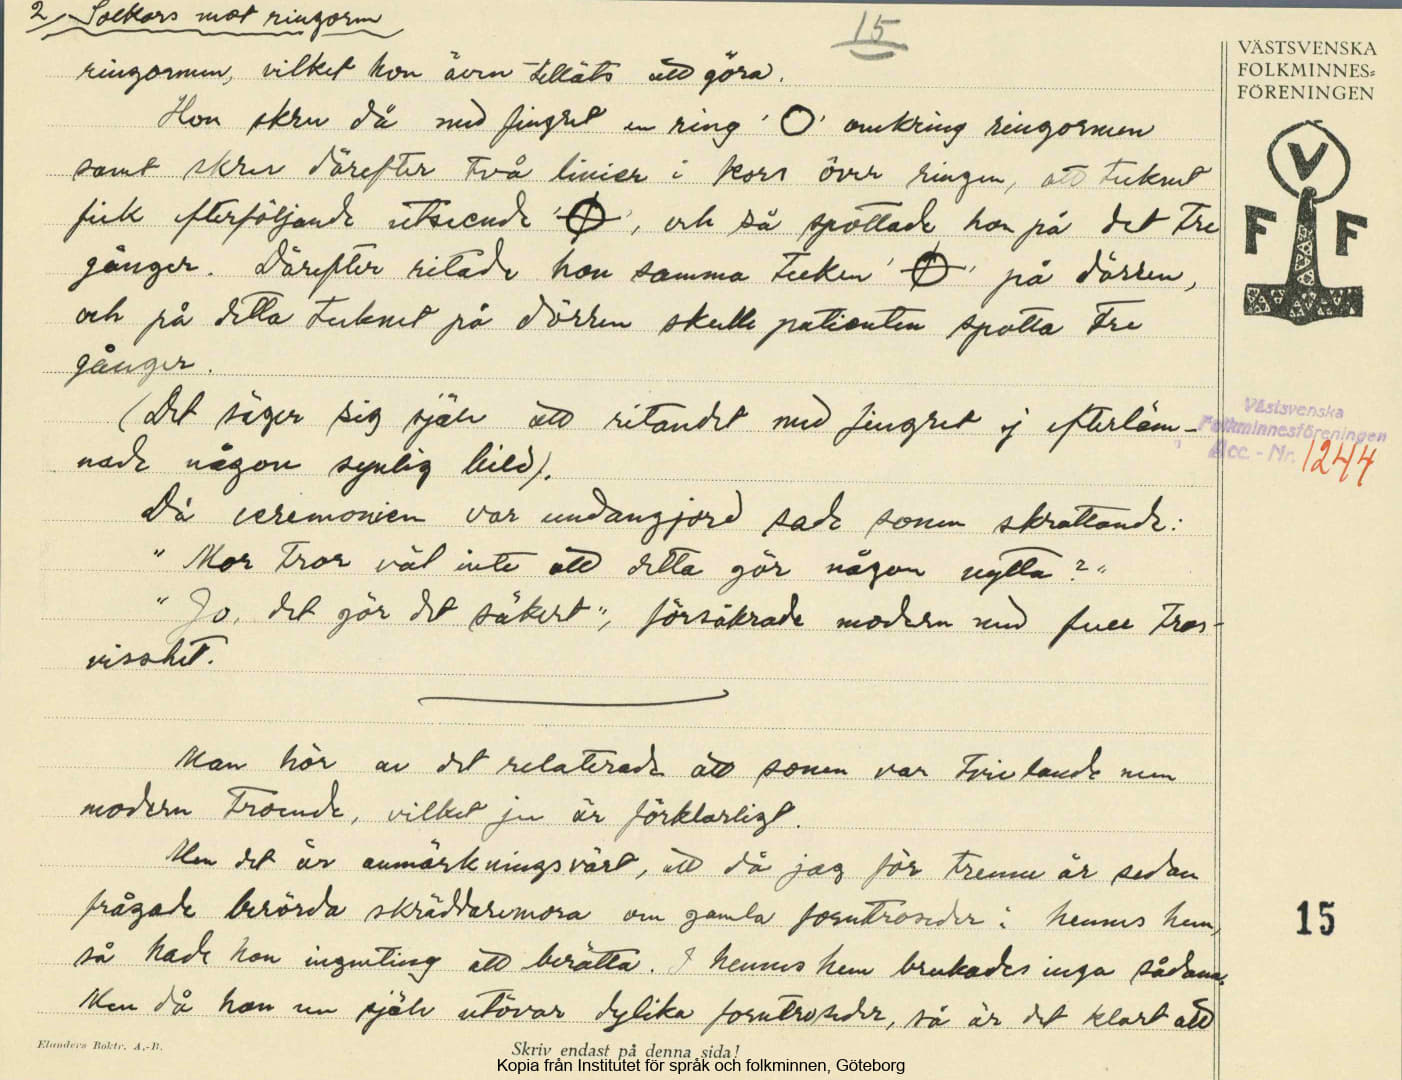 2 Solkors mot ringorm
15
ringormen, vilket hon även tilläts att göra.
Hon skrev då med fingret en ring 'O' omkring ringormen
samt skrev därefter två linier i kors över ringen, att tecknet
fick efterföljande utseende ' ', och så spottade hon på det tre
gånger. Därefter ritade hon samma tecken ' ' på dörren,
och på detta tecknet på dörren skulle patienten spotta tre
gånger.
(Det säger sig själv att ritandet med fingret ej efterläm-
nade någon synlig bild).
Då ceremonien var undangjord sade sonen skrattande:
" Mor tror väl inte att detta gör någon nytta?"
" Jo, det gör det säkert", försäkrade modern med full tros-
visshet.
Man hör av det relaterade att sonen var tvivlande men
modern troende, vilket ju är förklarligt.
Men det är anmärkningsvärt, att då jag för trenne år sedan
frågade berörda skräddaremora om gamla forntroseder i hennes hem,
så hade hon ingenting att berätta. I hennes hem brukades inga sådana.
Men då hon nu själv utövar dylika forntroseder, så är det klart att
VÄSTSVENSKA
FOLKMINNES=
FÖRENINGEN
V
F F
Västsvenska
Folkminnesföreningen
Acc. - Nr. 1244
15
Elanders Boktr. A.-B.
Skriv endast på denna sida!
Kopia från Institutet för språk och folkminnen, Göteborg